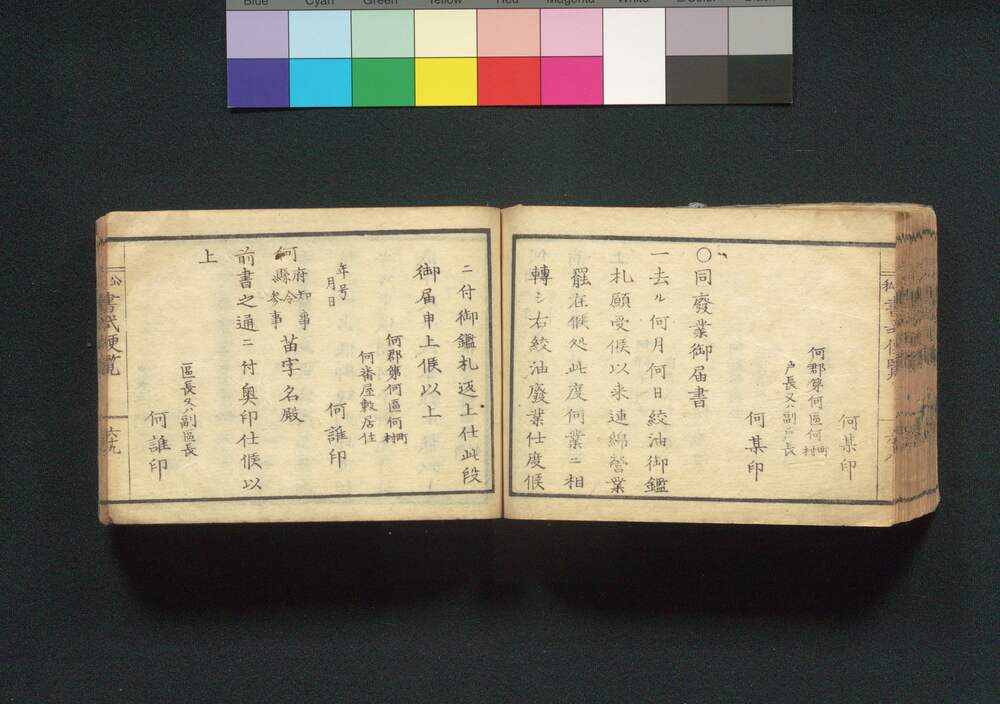 Blue Cyan Green Yellow Red Magenta White 3/Color Black
何某印
何郡第何區何町村
戸長又ハ副戸長
何某印
〇同廢業御届書
一去ル何月何日絞油御鑑
札願受候以来連綿營業
罷在候処此度何業ニ相
轉シ右絞油廢業仕度候
ニ付御鑑札返上仕此段
御届申上候以上
何郡第何區何町村
何番屋敷居住
何誰印
年号
月日
何府知事
縣令
參事
苗字名殿
前書之通ニ付奥印仕候以
上
區長又ハ副區長
何誰印
公
書式便覧
六十九